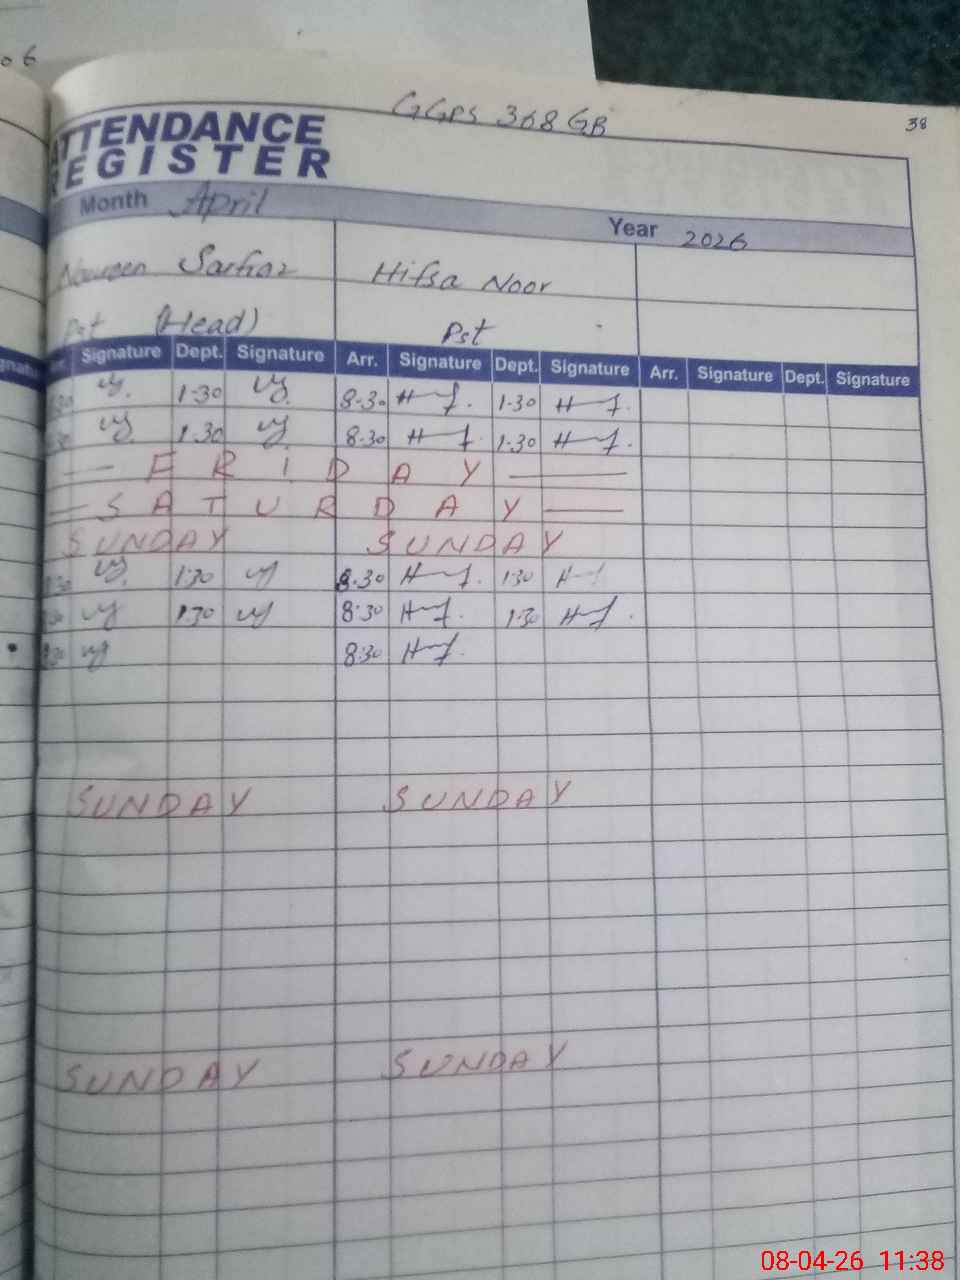 06
GGPS 368 GB
38
ATTENDANCE
REGISTER
Month April
Year 2026
Nowreen Sarfraz Hifsa Noor
Pst (Head) Pst
Signature Dept. Signature Arr. Signature Dept. Signature Arr. Signature Dept. Signature
8:30 1-30 8-30 1-30
8:30 1.30 8-30 1-30
FRIDAY
SATURDAY
SUNDAY SUNDAY
8:30 1:30 8.30 1:30
8:30 1:30 8:30 1:30
8:30 8:30
SUNDAY SUNDAY
SUNDAY SUNDAY
08-04-26 11:38